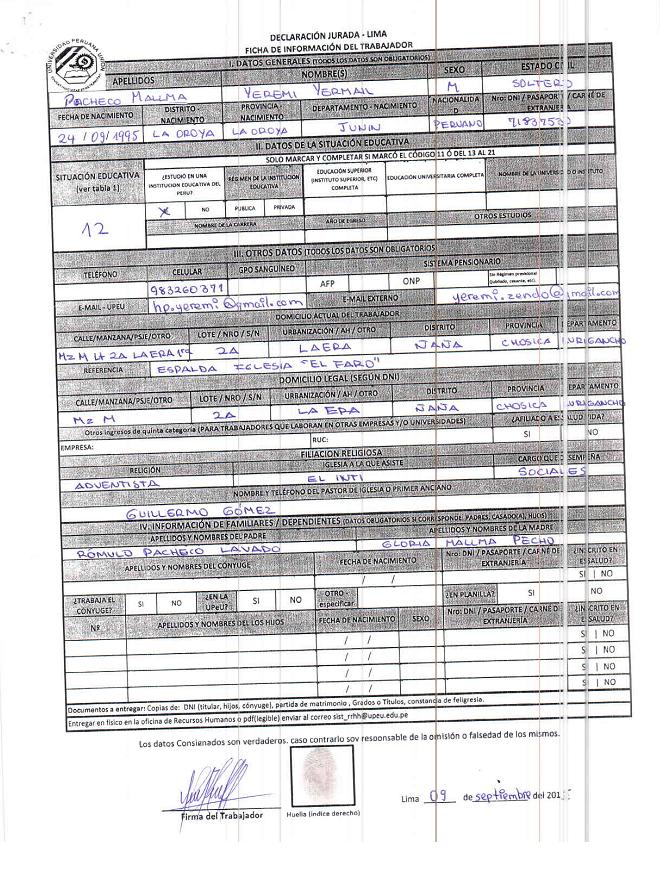 DECLARACIÓN JURADA - LIMA
FICHA DE INFORMACIÓN DEL TRABAJADOR
UNIVERSIDAD PERUANA UNIÓN
I. DATOS GENERALES (TODOS LOS DATOS SON OBLIGATORIOS)
APELLIDOS NOMBRE(S) SEXO ESTADO CIVIL
PACHECO MALLMA YEREMI YERMAIL M SOLTERO
FECHA DE NACIMIENTO DISTRITO - NACIMIENTO PROVINCIA - NACIMIENTO DEPARTAMENTO - NACIMIENTO NACIONALIDAD Nro: DNI / PASAPORTE / CARNÉ DE EXTRANJERÍA
24/09/1995 LA OROYA LA OROYA JUNIN PERUANO
II. DATOS DE LA SITUACIÓN EDUCATIVA
SOLO MARCAR Y COMPLETAR SI MARCÓ EL CÓDIGO 11 Ó DEL 13 AL 21
SITUACIÓN EDUCATIVA (ver tabla 1) ¿ESTUDIÓ EN UNA INSTITUCIÓN EDUCATIVA DEL PERU? RÉGIMEN DE LA INSTITUCIÓN EDUCATIVA EDUCACIÓN SUPERIOR (INSTITUTO SUPERIOR, ETC) COMPLETA EDUCACIÓN UNIVERSITARIA COMPLETA NOMBRE DE LA UNIVERSIDAD O INSTITUTO
X NO PUBLICA PRIVADA
12
NOMBRE DE LA CARRERA AÑO DE EGRESO OTROS ESTUDIOS
III. OTROS DATOS (TODOS LOS DATOS SON OBLIGATORIOS)
TELÉFONO CELULAR GPO SANGUÍNEO SISTEMA PENSIONARIO
983260371 AFP ONP Sin Régimen provisional (jubilado, cesante, etc.)
E-MAIL - UPEU hp.yeremi@gmail.com E-MAIL EXTERNO yeremi.zendo@gmail.com
DOMICILIO ACTUAL DEL TRABAJADOR
CALLE/MANZANA/PSJE/OTRO LOTE / NRO / S/N URBANIZACIÓN / AH / OTRO DISTRITO PROVINCIA DEPARTAMENTO
Mz M Lt 2A LA ERA 2A LAERA ÑAÑA CHOSICA LURIGANCHO
REFERENCIA ESPALDA IGLESIA "EL FARO"
DOMICILIO LEGAL (SEGÚN DNI)
CALLE/MANZANA/PSJE/OTRO LOTE / NRO / S/N URBANIZACIÓN / AH / OTRO DISTRITO PROVINCIA DEPARTAMENTO
Mz M 2A LA ERA ÑAÑA CHOSICA LURIGANCHO
Otros ingresos de quinta categoría (PARA TRABAJADORES QUE LABORAN EN OTRAS EMPRESAS Y/O UNIVERSIDADES) ¿AFILIADO A ESSALUD VIDA?
EMPRESA: RUC: SI NO
FILIACION RELIGIOSA
RELIGIÓN IGLESIA A LA QUE ASISTE CARGO QUE DESEMPEÑA
ADVENTISTA EL INTI SOCIALES
NOMBRE Y TELÉFONO DEL PASTOR DE IGLESIA O PRIMER ANCIANO
GUILLERMO GÓMEZ
IV. INFORMACIÓN DE FAMILIARES / DEPENDIENTES (DATOS OBLIGATORIOS SI CORRESPONDE: PADRES, CASADO(A), HIJOS)
APELLIDOS Y NOMBRES DEL PADRE APELLIDOS Y NOMBRES DE LA MADRE
ROMULO PACHECO LAVADO GLORIA MALLMA PECHO
APELLIDOS Y NOMBRES DEL CÓNYUGE FECHA DE NACIMIENTO Nro: DNI / PASAPORTE / CARNÉ DE EXTRANJERÍA ¿INSCRITO EN ESSALUD?
/ / SI NO
¿TRABAJA EL CÓNYUGE? SI NO ¿EN LA UPeU? SI NO OTRO - especificar ¿EN PLANILLA? SI NO
Nº APELLIDOS Y NOMBRES DEL LOS HIJOS FECHA DE NACIMIENTO SEXO Nro: DNI / PASAPORTE / CARNÉ DE EXTRANJERÍA ¿INSCRITO EN ESSALUD?
/ / SI NO
/ / SI NO
/ / SI NO
/ / SI NO
Documentos a entregar: Copias de: DNI (titular, hijos, cónyuge), partida de matrimonio, Grados o Títulos, constancia de feligresia.
Entregar en físico en la oficina de Recursos Humanos o pdf(legible) enviar al correo sist_rrhh@upeu.edu.pe
Los datos Consignados son verdaderos, caso contrario soy responsable de la omisión o falsedad de los mismos.
Lima 09 de septiembre del 201
Firma del Trabajador Huella (índice derecho)